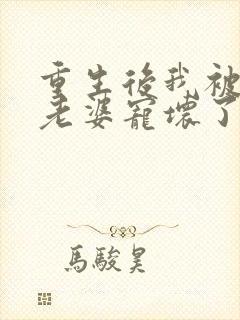 重生後我被
老婆寵壞了
馬駿昊